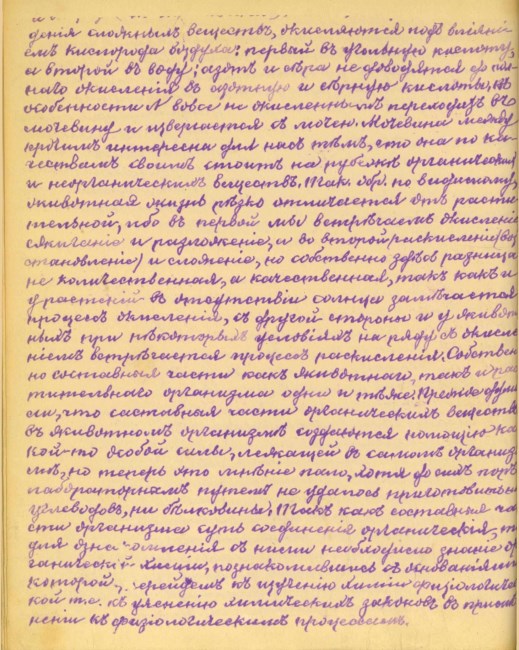 денія сложныхъ веществъ, окисляются подъ вліяні-
емъ кислорода воздуха: первый въ угольную кислоту,
а второй въ воду; азотъ и сѣра не доводятся до пол-
наго окисленія въ азотную и сѣрную кислоты, въ
особенности N вовсе не окисленнымъ переходитъ въ
мочевину и извергается съ мочею. Мочевина между
прочимъ интересна для насъ тѣмъ, что она по ка-
чествамъ своимъ стоитъ на рубежѣ органическихъ
и неорганическихъ веществъ. Так. обр. по видимому,
животная жизнь рѣзко отличается отъ расти-
тельной, ибо въ первой мы встрѣчаемъ окисленіе
сжиганіе и разложеніе, а во второй раскисленіе (воз
становленіе) и сложеніе, но собственно здѣсь разница
не количественная, а качественная, такъ какъ и
у растеній въ отсутствіи солнца замѣчается
процессъ окисленія, съ другой стороны и у живот-
ныхъ при нѣкоторыхъ условіяхъ на ряду съ окисле-
ніемъ встрѣчается процессъ раскисленія. Собствен-
но составныя части какъ животнаго, такъ и рас-
тительнаго организма одни и тѣ же. Прежде дума-
ли, что составныя части органическихъ веществъ
въ животномъ организмѣ создаются помощію ка-
кой-то особой силы, лежащей въ самомъ организ-
мѣ, но теперь это мнѣніе пало, хотя до сихъ поръ
лабораторнымъ путемъ не удалось приготовить ни
углеводовъ, ни бѣлковины. Такъ какъ составныя ча-
сти организма суть соединенія органическія, то
для озна омленія съ ними необходимо знаніе ор-
ганической химіи, познакомившись съ основаніями
которой, ерейдемъ къ изученію химіи физіологичес-
кой т.е. къ ученію химическихъ законовъ въ примѣ-
неніи къ физіологическимъ процессамъ.